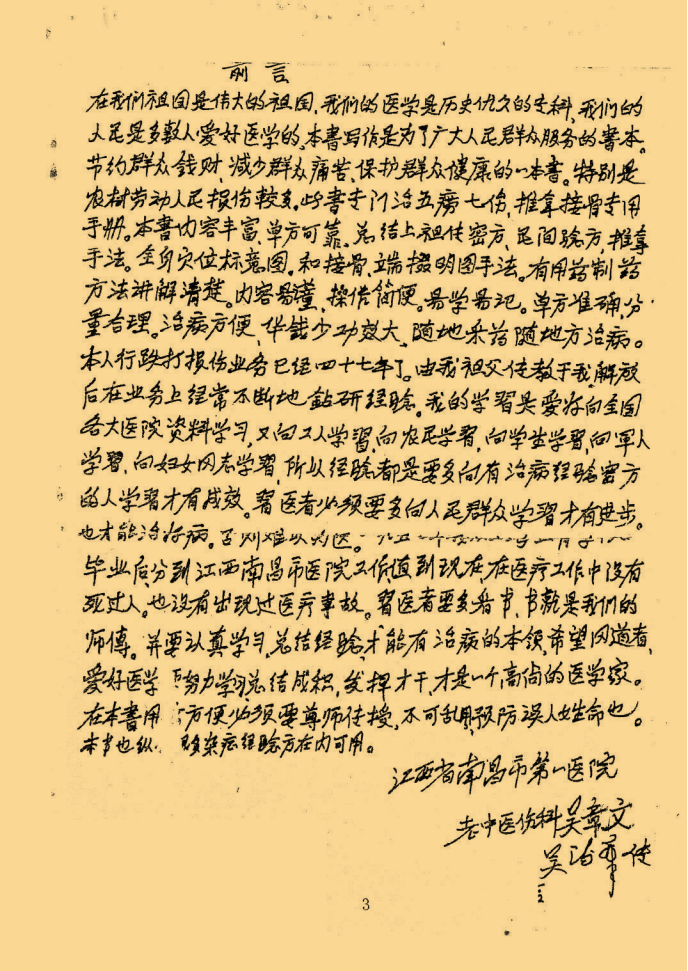 前言
在我们祖国是伟大的祖国，我们的医学是历史优久的专科，我们的
人民是多数人爱好医学的，本書写作是为了广大人民群众服务的書本。
节约群众钱财，减少群众痛苦，保护群众健康的一本書。特别是
农村劳动人民损伤较多。此書专门治五痨七伤，推拿接骨专用
手册。本書内容丰富，单方可靠，总结上祖传密方，民间验方，推拿
手法。全身穴位标意图。和接骨，端掇明图手法。有用药制药
方法讲解清楚。内容易懂，操借简便。易学易记。单方准确，分
量合理。治病方便，花钱少功效大，随地采药随地方治病。
本人行跌打损伤业务已经四十七年了。由我祖父传教于我，解放
后在业务上经常不断地鉆研经验。我的学習是爱好向全国
各大医院资料学习，又向工人学習，向农民学習，向学生学習，向軍人
学習，向妇女同志学習，所以经验都是要多向有治病经验密方
的人学習才有成效。習医者必须要多向人民群众学習才有进步。
也才能治好病。否则难以为医。
毕业后，分到江西南昌市医院工作，值到现在，在医疗工作中没有
死过人。也没有出现过医疗事故。習医者要多看书，书就是我们的
师傅。并要认真学习，总结经验，才能有治病的本领，希望同道者，
爱好医学 努力学习，总结成积，发挥才干，才是一个高尚的医学家。
在本書用 方便必须要尊师传授，不可乱用，预防误人生命也。
本书也 经验方在内可用。
江西省南昌市第一医院
老中医伤科吴章文
吴治 传
3